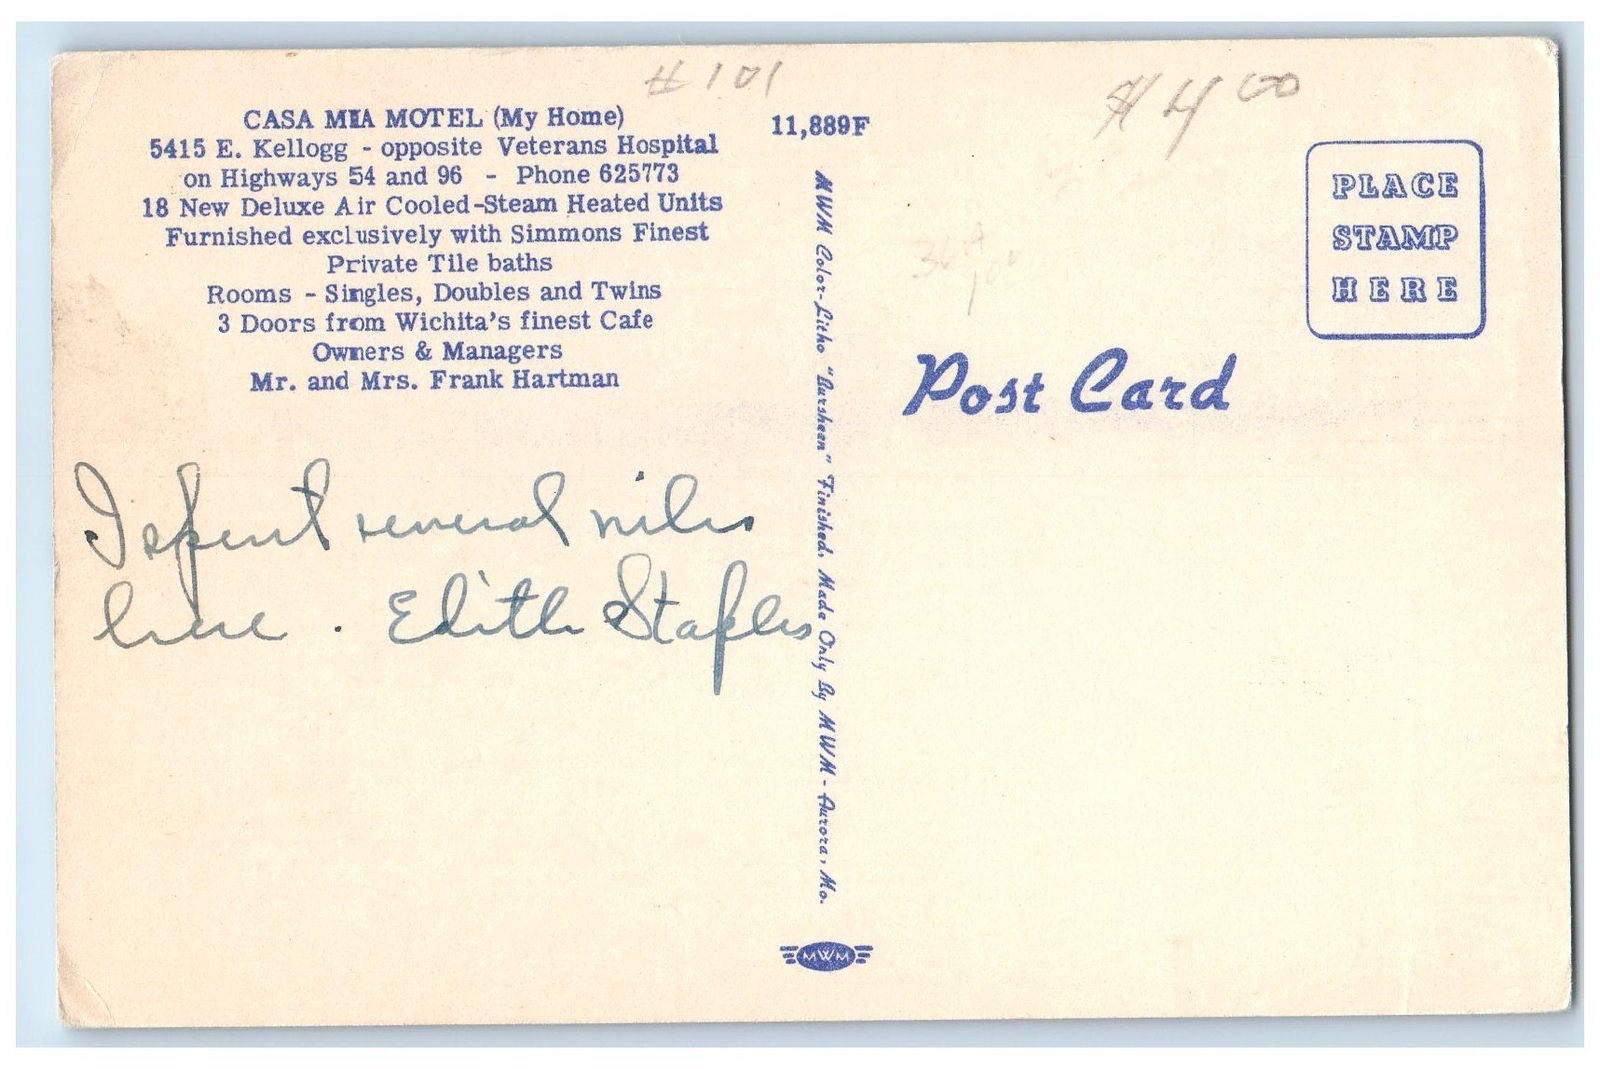 # 101
$4 00
CASA MIA MOTEL (My Home)
5415 E. Kellogg - opposite Veterans Hospital
on Highways 54 and 96 - Phone 625773
18 New Deluxe Air Cooled-Steam Heated Units
Furnished exclusively with Simmons Finest
Private Tile baths
Rooms - Singles, Doubles and Twins
3 Doors from Wichita's finest Cafe
Owners & Managers
Mr. and Mrs. Frank Hartman
I spent several nites
here. Edith Staples
11,889F
MWM Color-Litho "Aursheen" Finished, Made Only By MWM - Aurora, Mo.
MWM
PLACE
STAMP
HERE
Post Card